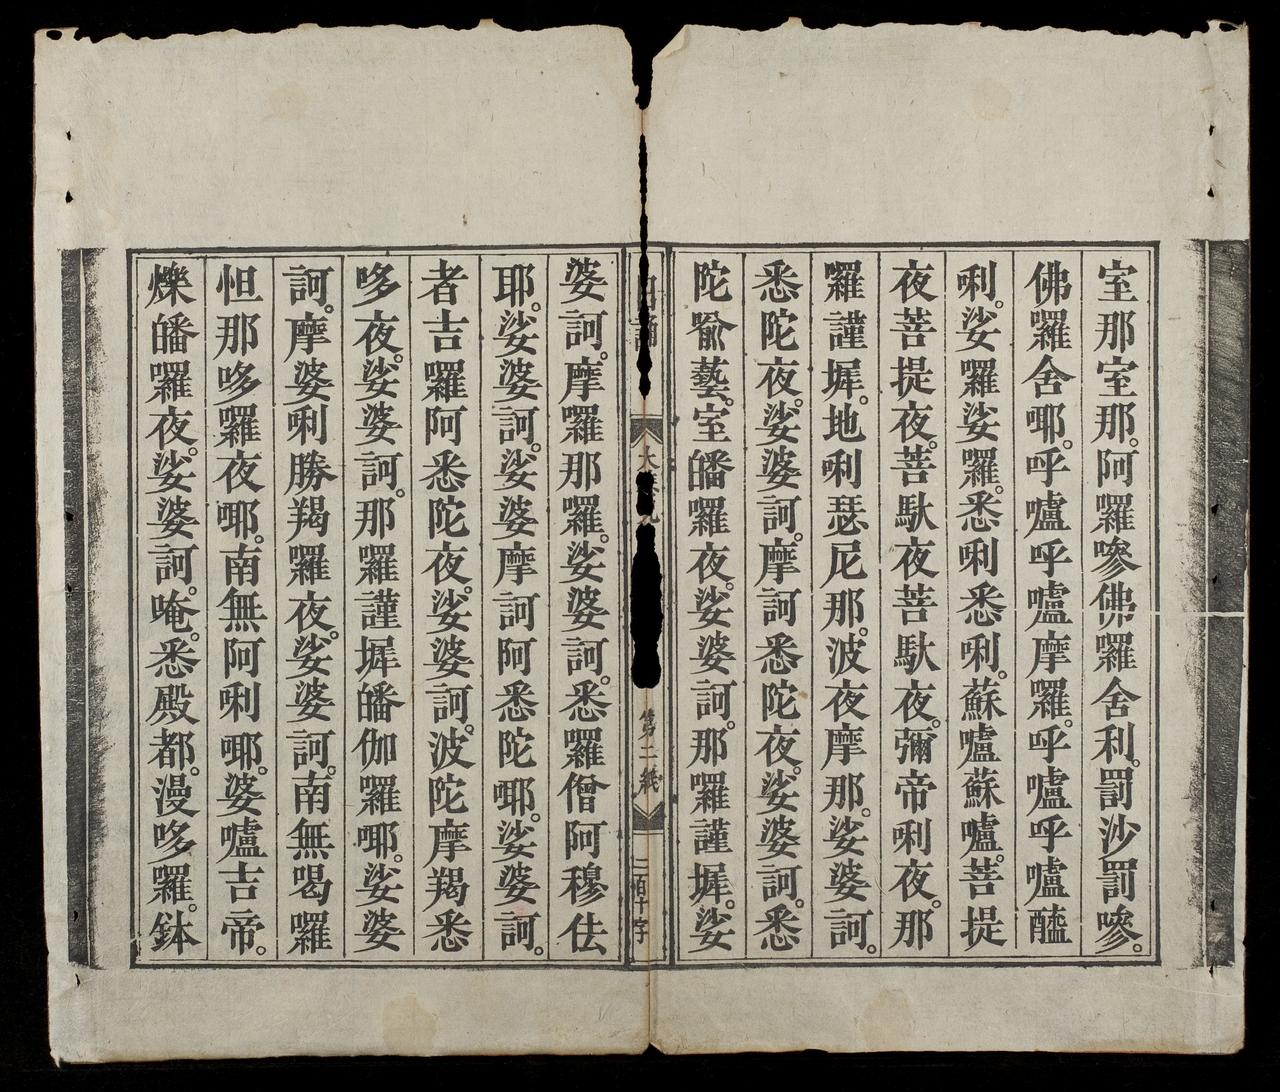 室那室那。阿羅嘇佛羅舍利。罰沙罰嘇。
佛羅舍耶。呼嚧呼嚧摩羅。呼嚧呼嚧醯
唎。娑羅娑羅。悉唎悉唎。蘇嚧蘇嚧。菩提
夜菩提夜。菩馱夜菩馱夜。彌帝唎夜。那
羅謹墀。地唎瑟尼那。波夜摩那。娑婆訶。
悉陀夜。娑婆訶。摩訶悉陀夜。娑婆訶。悉
陀喻藝。室皤羅夜。娑婆訶。那羅謹墀。娑
誦
大
第二紙
二百十字
婆訶。摩羅那羅。娑婆訶。悉羅僧阿穆佉
耶。娑婆訶。娑婆摩訶阿悉陀耶。娑婆訶。
者吉羅阿悉陀夜。娑婆訶。波陀摩羯悉
哆夜。娑婆訶。那羅謹墀皤伽羅耶。娑婆
訶。摩婆唎勝羯羅夜。娑婆訶。南無喝羅
怛那哆羅夜耶。南無阿唎耶。婆嚧吉帝。
爍皤囉夜。娑婆訶。唵。悉殿都。漫哆羅。鉢